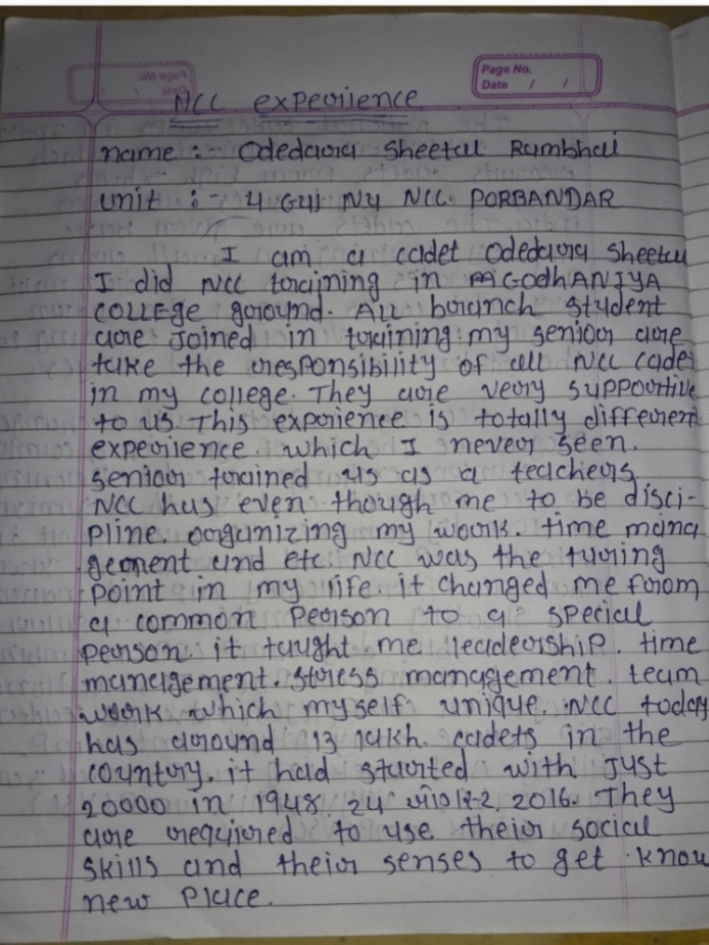 Page No.
Date / /
NCC experience
name :- Odedara Sheetal Rambhai
unit :- 4 Guj Ny NCC PORBANDAR
I am a cadet Odedara Sheetal
I did NCC training in GodhANIYA
COLLEge ground. All branch student
are joined in training. my senior are
take the responsibility of all NCC cadet
in my college. They are very supportive
to us. This experience is totally different
experience. which I never seen.
senior trained us as a teachers
NCC has even though me to be disci-
pline. organizing my work. time mana
gement and etc. NCC was the turing
point in my life. it changed me from
a common person to a special
person. it taught me leadership. time
management. stress management. team
work which myself unique. NCC today
has around 13 lakh. cadets in the
country. it had started with just
20000 in 1948. 24 2016. They
are required to use their social
skills and their senses to get know
new place.